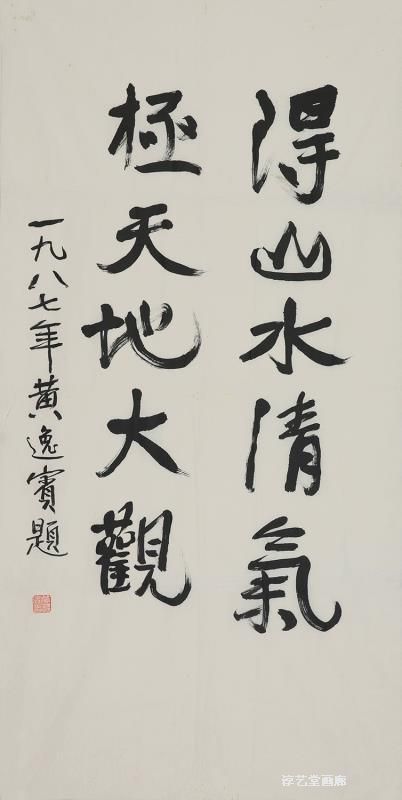 得山水清氣
極天地大觀
一九八七年黄逸賓題
淳艺堂画廊